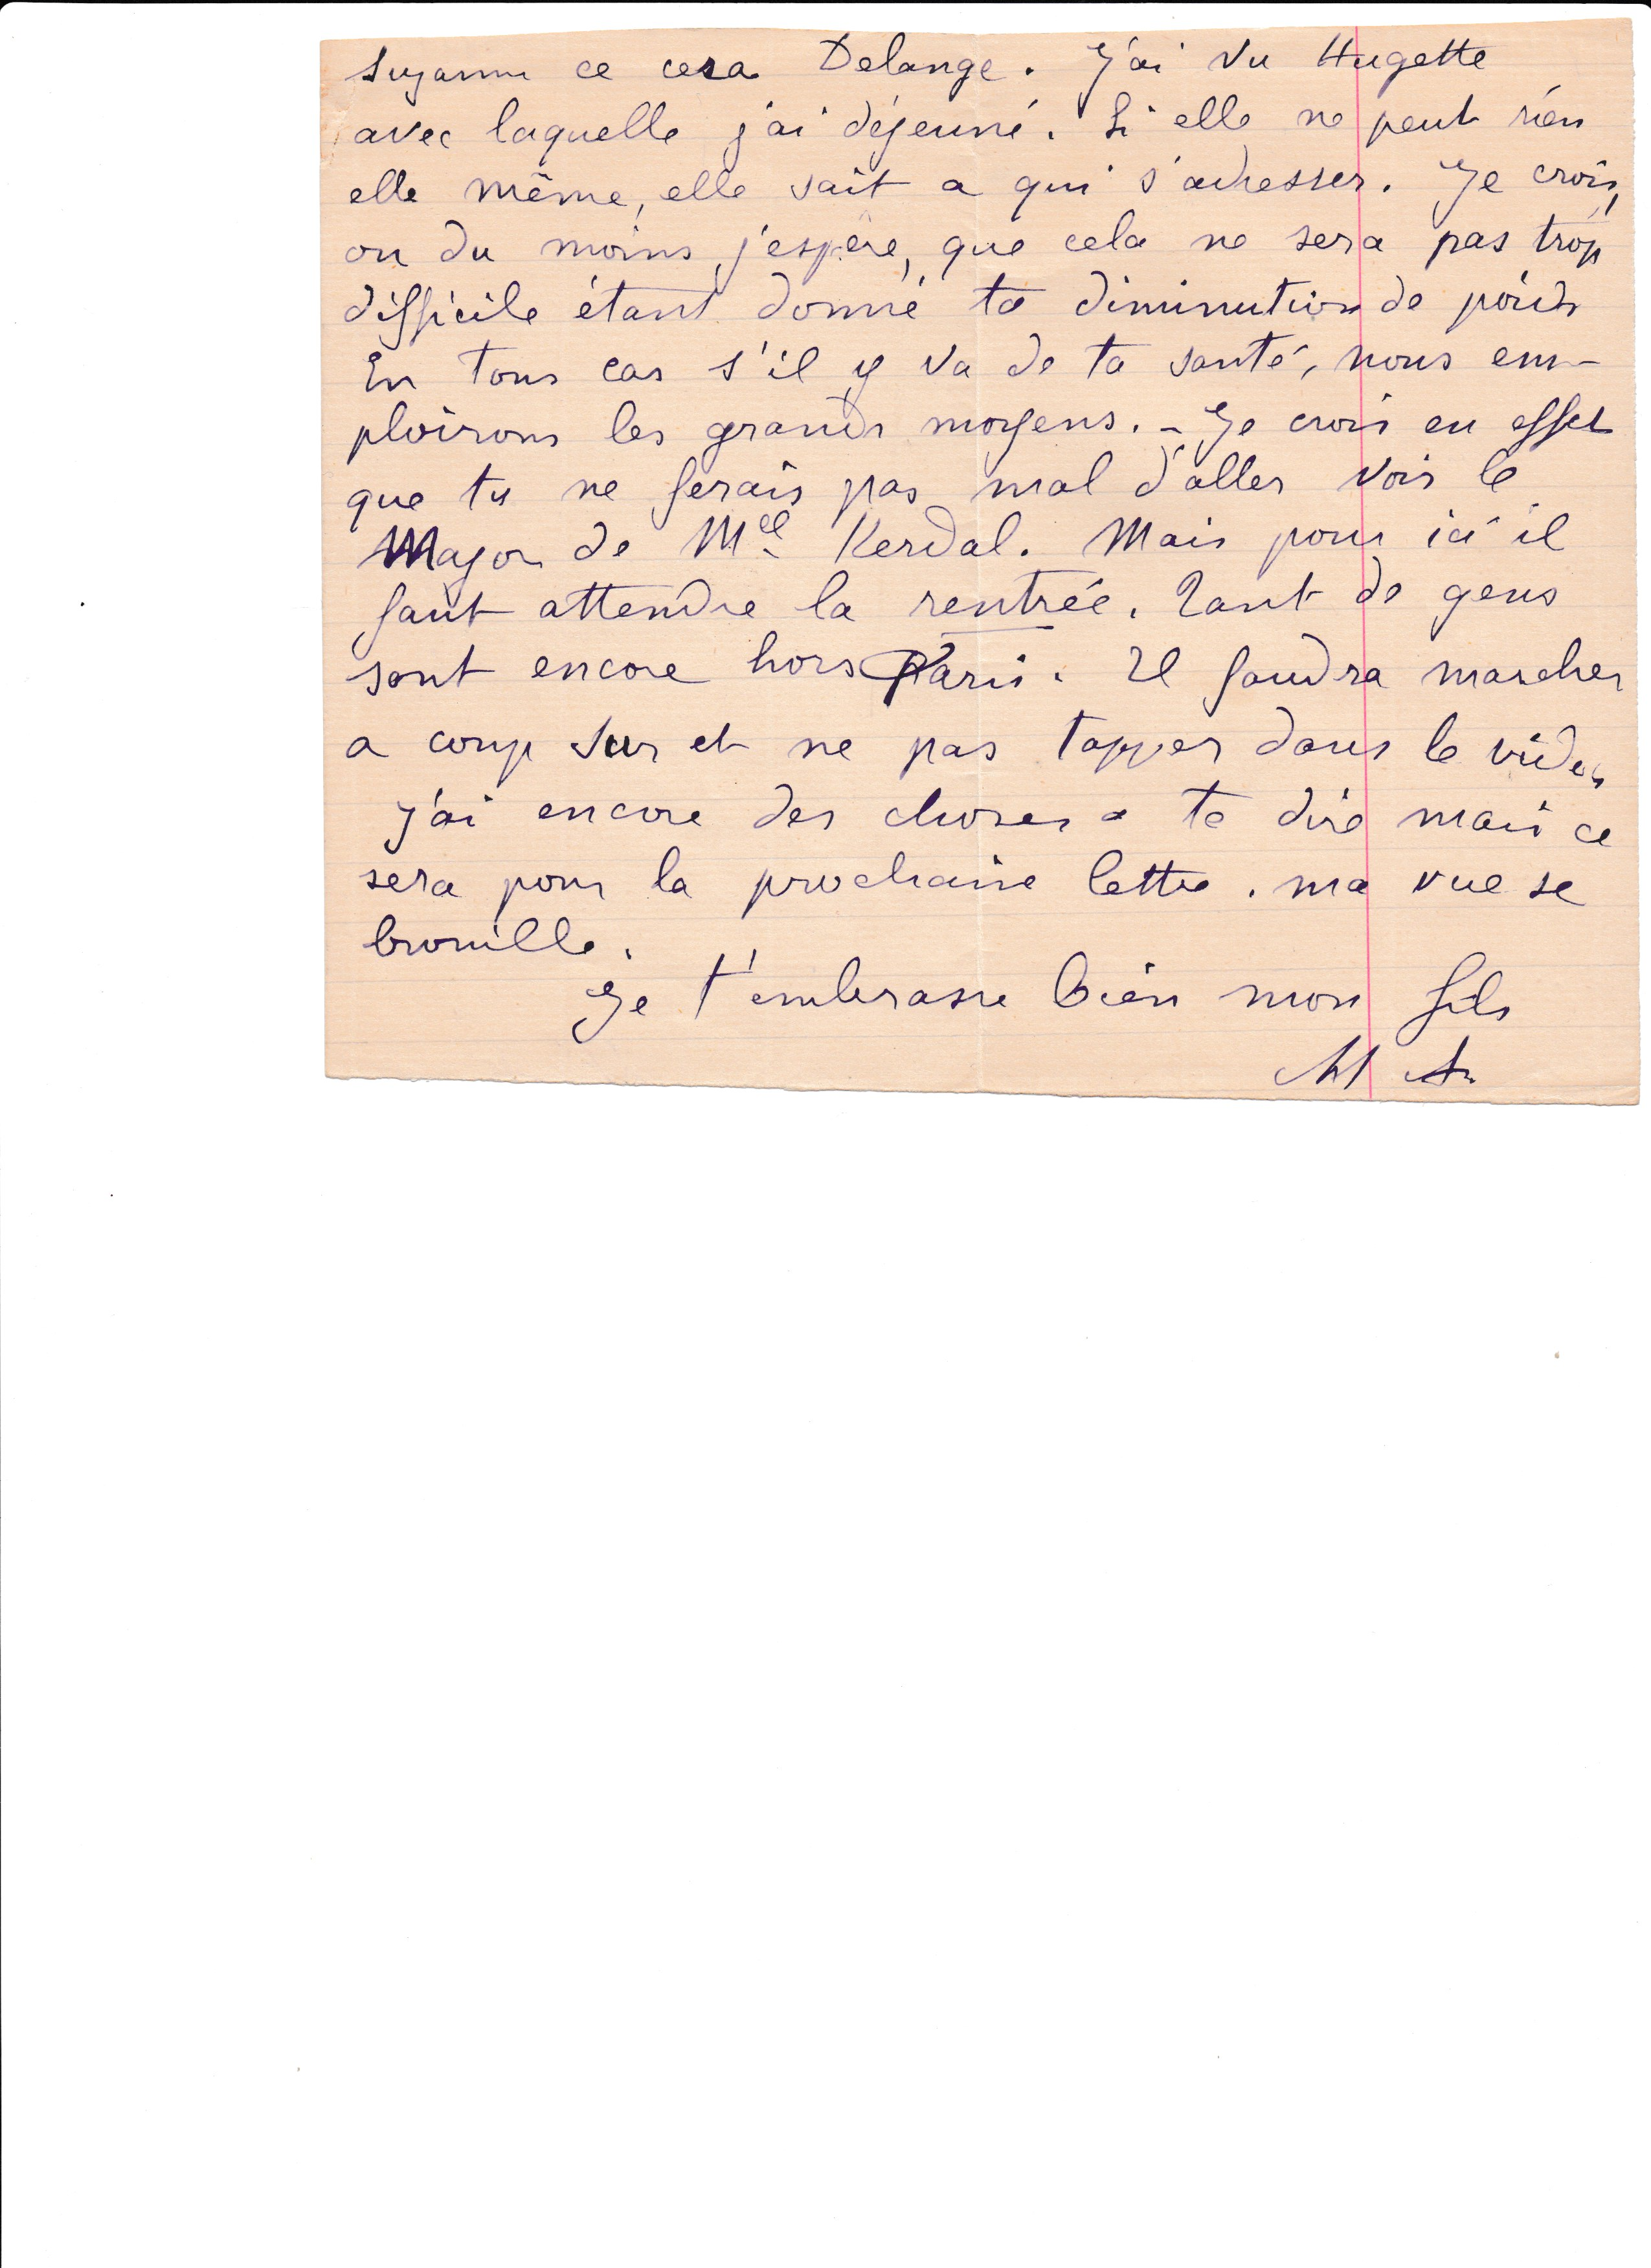 Suzanne ce cera Delange. J'ai vu Hugette
avec laquelle j'ai déjeuné. Si elle ne peut rien
elle même, elle sait a qui s'adresser. Je crois,
ou du moins j'espère, que cela ne sera pas trop
difficile étant donné ta diminution de poids
En tous cas s'il y va de ta santé, nous em-
ploirons les grands moyens. - Je crois en effet
que tu ne ferais pas mal d'aller voir le
Major de Mel Kerdal. Mais pour ici il
faut attendre la rentrée. Tant de gens
sont encore hors Paris. Il faudra marcher
a coup sur et ne pas tapper dans le vide.
J'ai encore des choses a te dire mais ce
sera pour la prochaine lettre. ma vue se
brouille.
Je t'embrasse bien mon fils